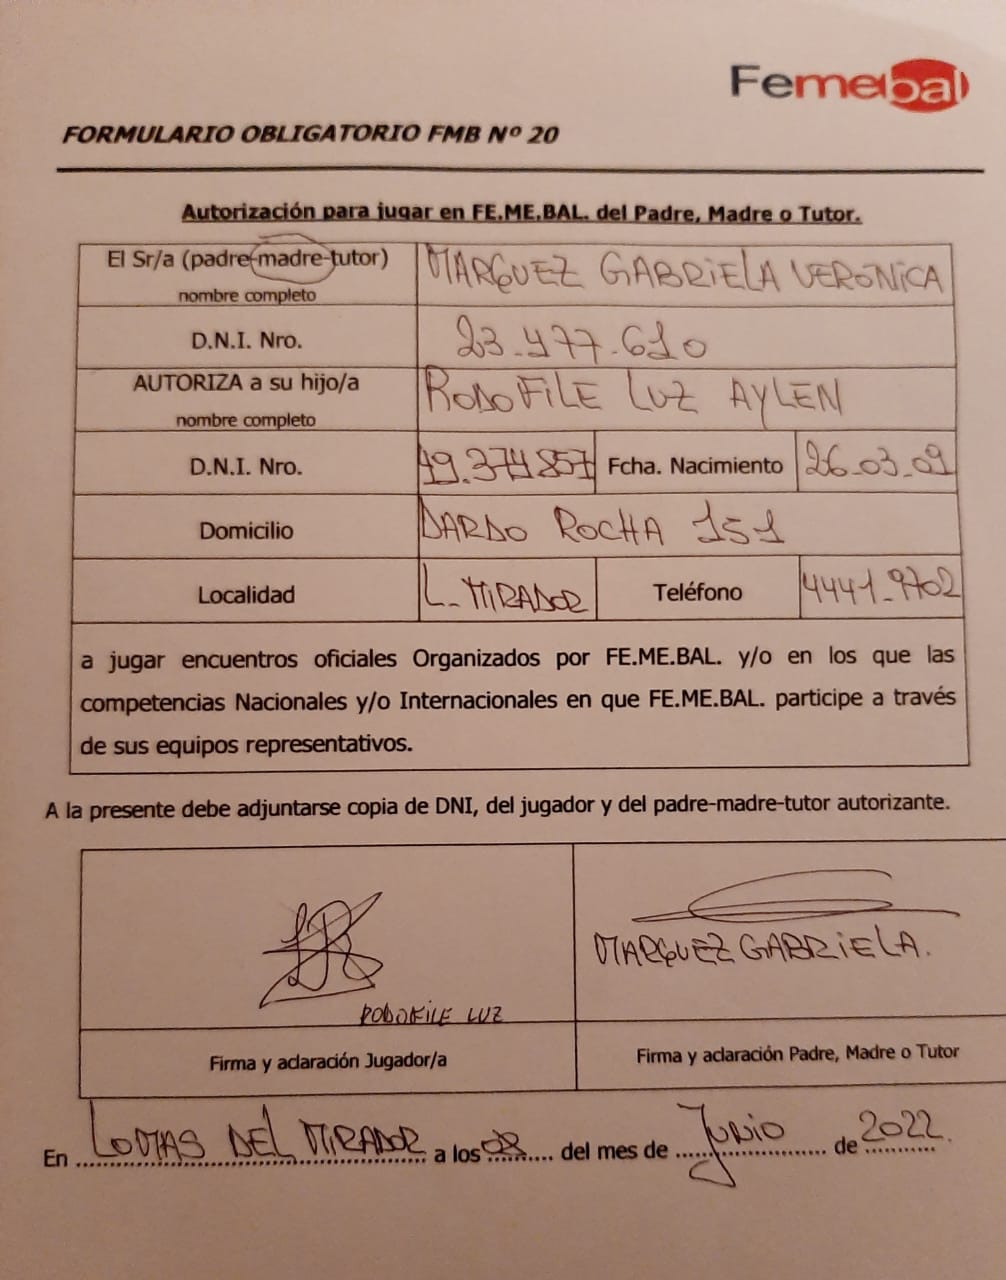 Femebal
FORMULARIO OBLIGATORIO FMB Nº 20
Autorización para jugar en FE.ME.BAL. del Padre, Madre o Tutor.
El Sr/a (padre-madre-tutor) MARQUEZ GABRIELA VERONICA
nombre completo
D.N.I. Nro. 23.477.610
AUTORIZA a su hijo/a RODOFILE LUZ AYLEN
nombre completo
D.N.I. Nro. 49.374.857 Fcha. Nacimiento 26-03-09
Domicilio DARDO ROCHA 151
Localidad L. MIRADOR Teléfono 4441-9702
a jugar encuentros oficiales Organizados por FE.ME.BAL. y/o en los que las
competencias Nacionales y/o Internacionales en que FE.ME.BAL. participe a través
de sus equipos representativos.
A la presente debe adjuntarse copia de DNI, del jugador y del padre-madre-tutor autorizante.
RODOFILE LUZ
MARQUEZ GABRIELA.
Firma y aclaración Jugador/a
Firma y aclaración Padre, Madre o Tutor
En LOMAS DEL MIRADOR a los 08 del mes de JUNIO de 2022.